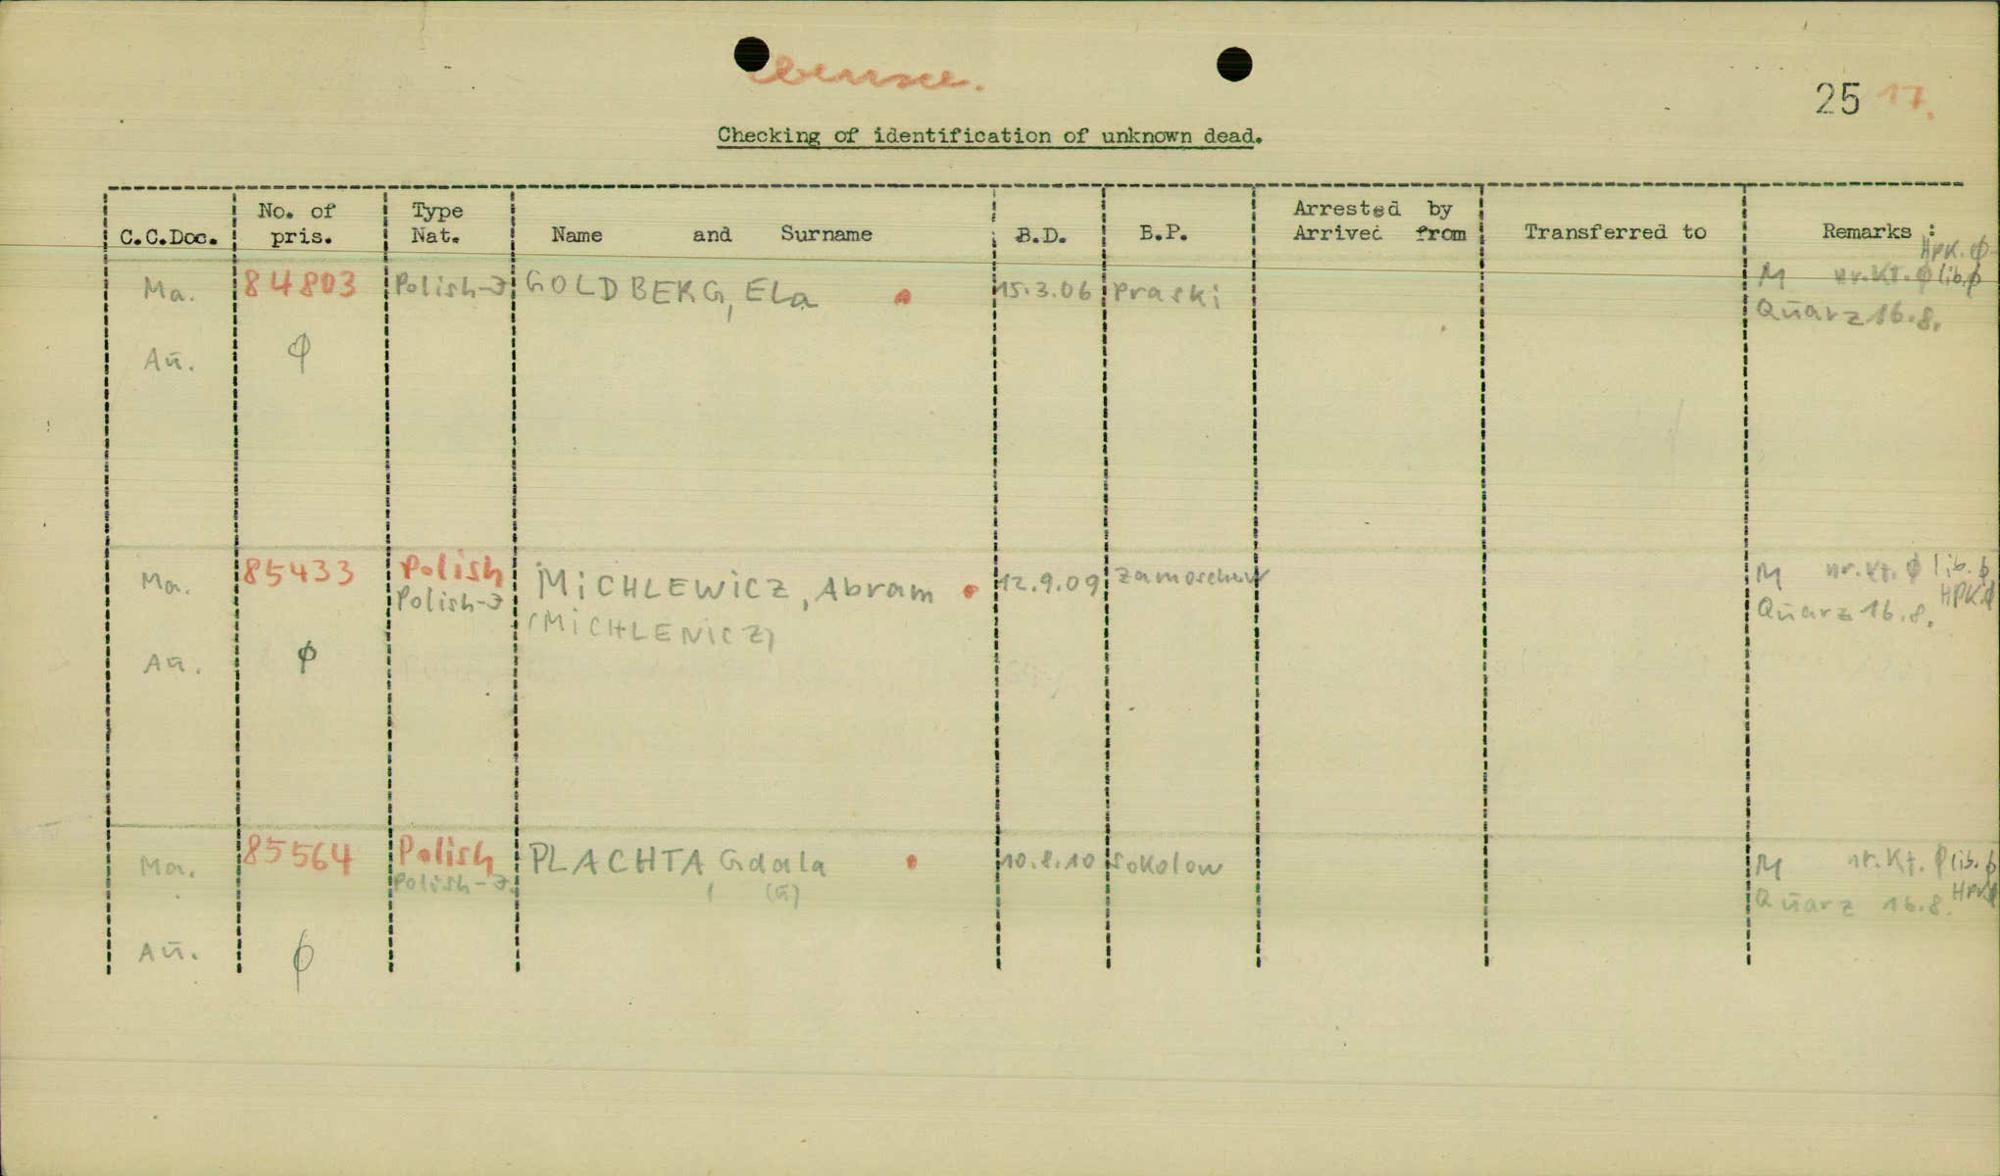 Ebensee.
25 17.
Checking of identification of unknown dead.
C.C.Doc. No. of pris. Type Nat. Name and Surname B.D. B.P. Arrested by Arrived from Transferred to Remarks :
HPK. φ
Ma. 84803 Polish-J GOLDBERG, Ela 15.3.06 Praski M nr.Kt. φ lib. φ
Quarz 16.8.
Aū. φ
Ma. 85433 Polish MiCHLEWiCZ, Abram 12.9.09 M nr.Kt. φ lib. φ
Polish-J (MiCHLENiCZ) Quarz 16.8. HPK. φ
Aū. φ
Ma. 85564 Polish PLACHTA, Gdala 10.8.10 Sokolow M nr.Kt. φ lib. φ
Polish-J. (ū) Quarz 16.8. HPK φ
Aū. φ